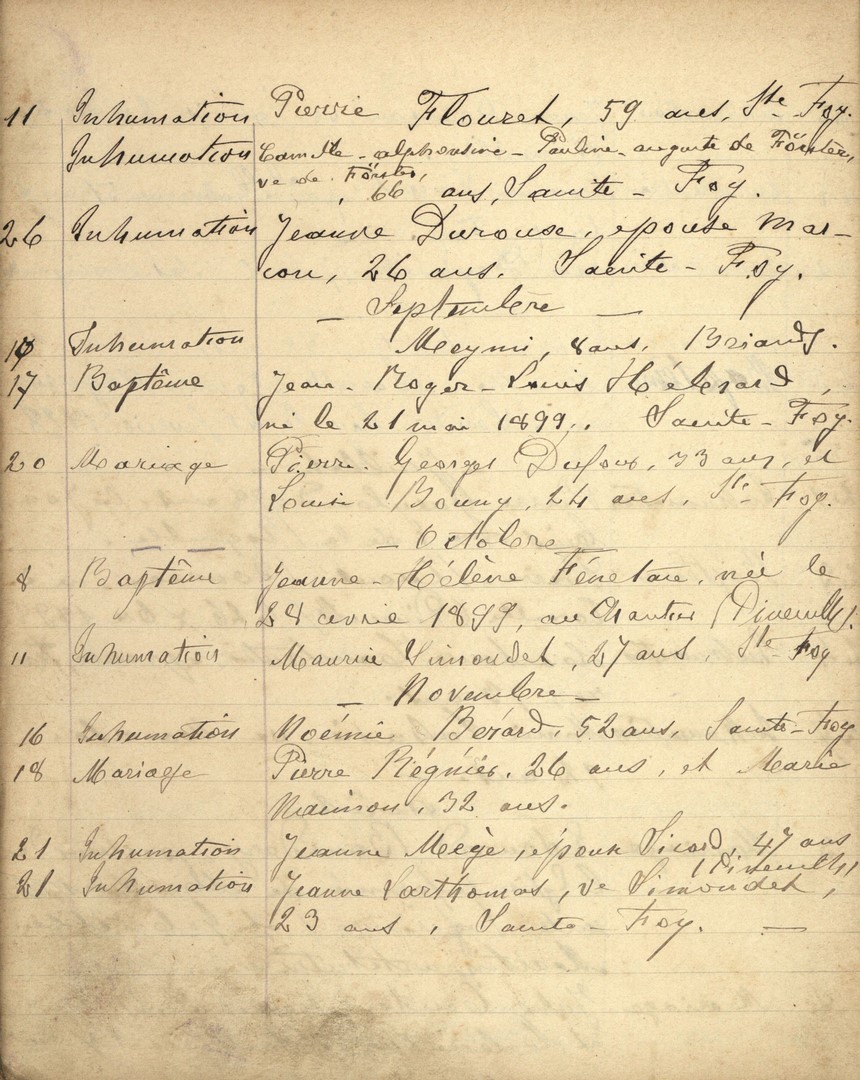 11 Inhumation Pierre Flouret, 59 ans, Ste Foy.
Inhumation Camille-alphonsine-Pauline-auguste de Förster,
ve de Förster,
, 66 ans, Sainte-Foy.
26 Inhumation Jeanne Durouse, epouse Mar-
con, 26 ans. Sainte-Foy.
— Septembre —
Inhumation Meymi, 8 ans. Briands.
17 Baptême Jean-Roger-Louis Hébrard,
né le 21 mai 1899.. Sainte-Foy.
20 Mariage Pierre-Georges Dufour, 33 ans, et
Louise Bouny, 24 ans, Ste Foy.
— Octobre
8 Baptême Jeanne-Hélène Fénetau, née le
28 avril 1899, au Chantier (Pineuilh).
11 Inhumation Maurice Simondet, 27 ans, Ste Foy
— Novembre —
16 Inhumation Noémie Berard, 52 ans, Sainte-Foy
18 Mariage Pierre Régnier, 26 ans, et Marie
32 ans.
21 Inhumation Jeanne Mège, épouse Sicard, 47 ans
(Pineuilh)
21 Inhumation Jeanne Larthomas, ve Simondet,
23 ans, Sainte-Foy. —